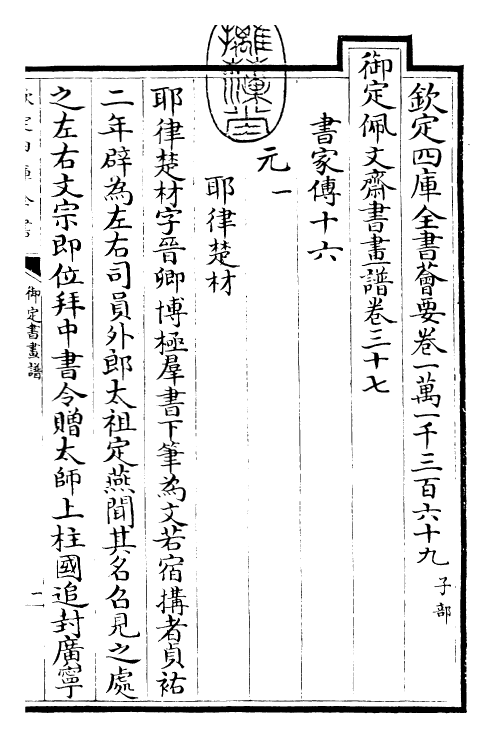 欽定四庫全書薈要卷一萬一千三百六十九 子部
御定佩文齋書畫譜卷三十七
書家傳十六
元一
耶律楚材
耶律楚材字晉卿博極羣書下筆為文若宿搆者貞祐
二年辟為左右司員外郎太祖定燕聞其名召見之處
之左右文宗即位拜中書令贈太師上柱國追封廣寧
御定書畫譜
一